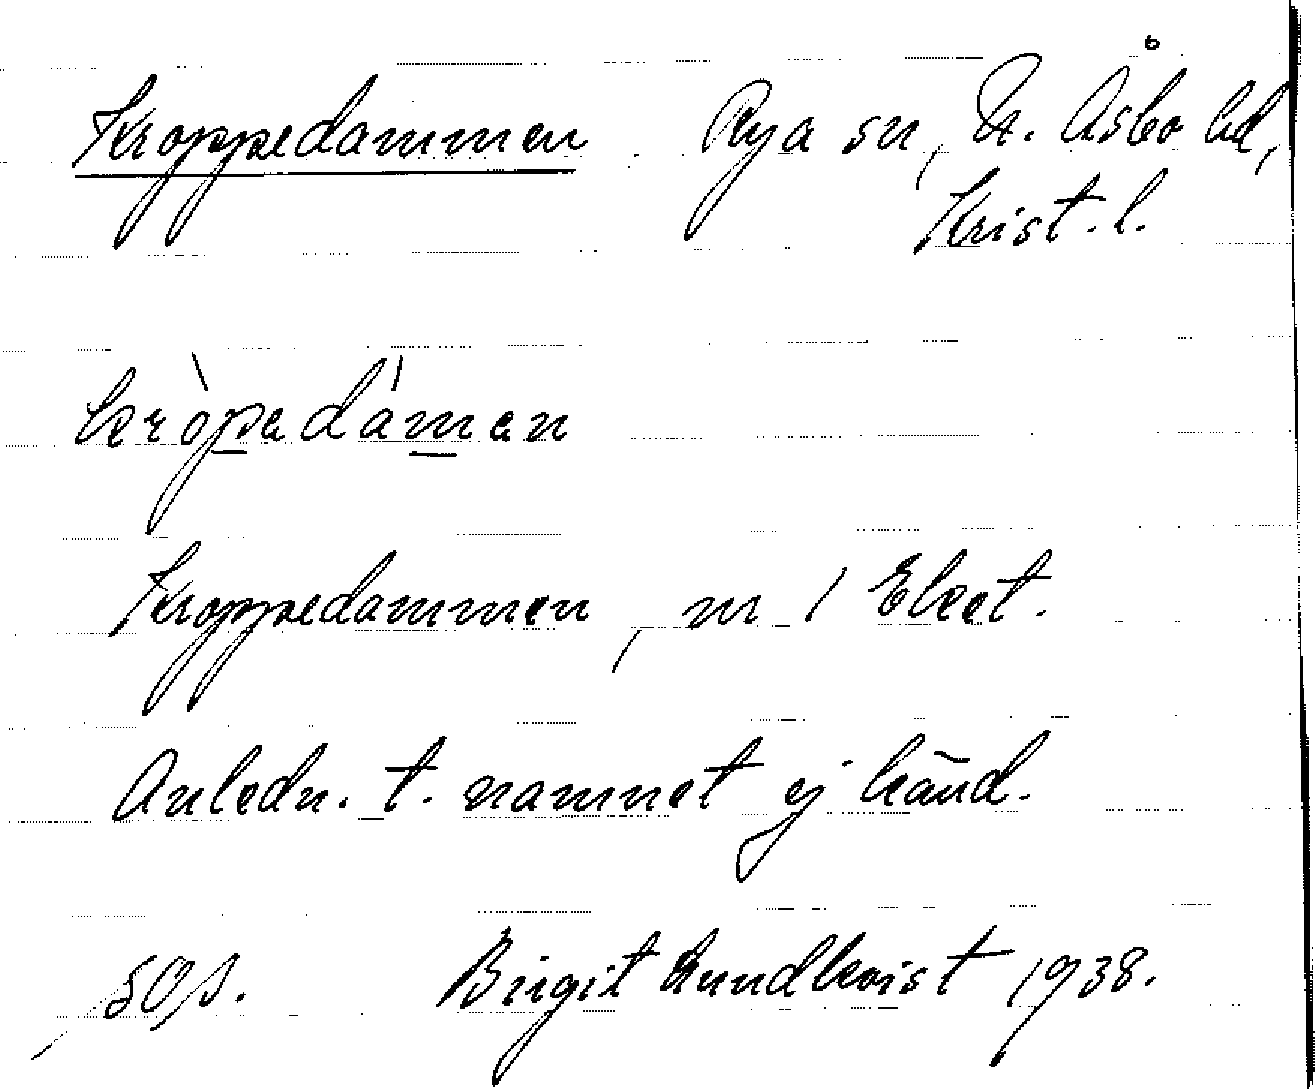 Kroppedammen Rya sn, N. Åsbo hd,
Krist. l.
kròpedámen
Kroppedammen, nr 1 Eket.
Anledn. t. namnet ej känd.
Birgit Lundkvist 1938.